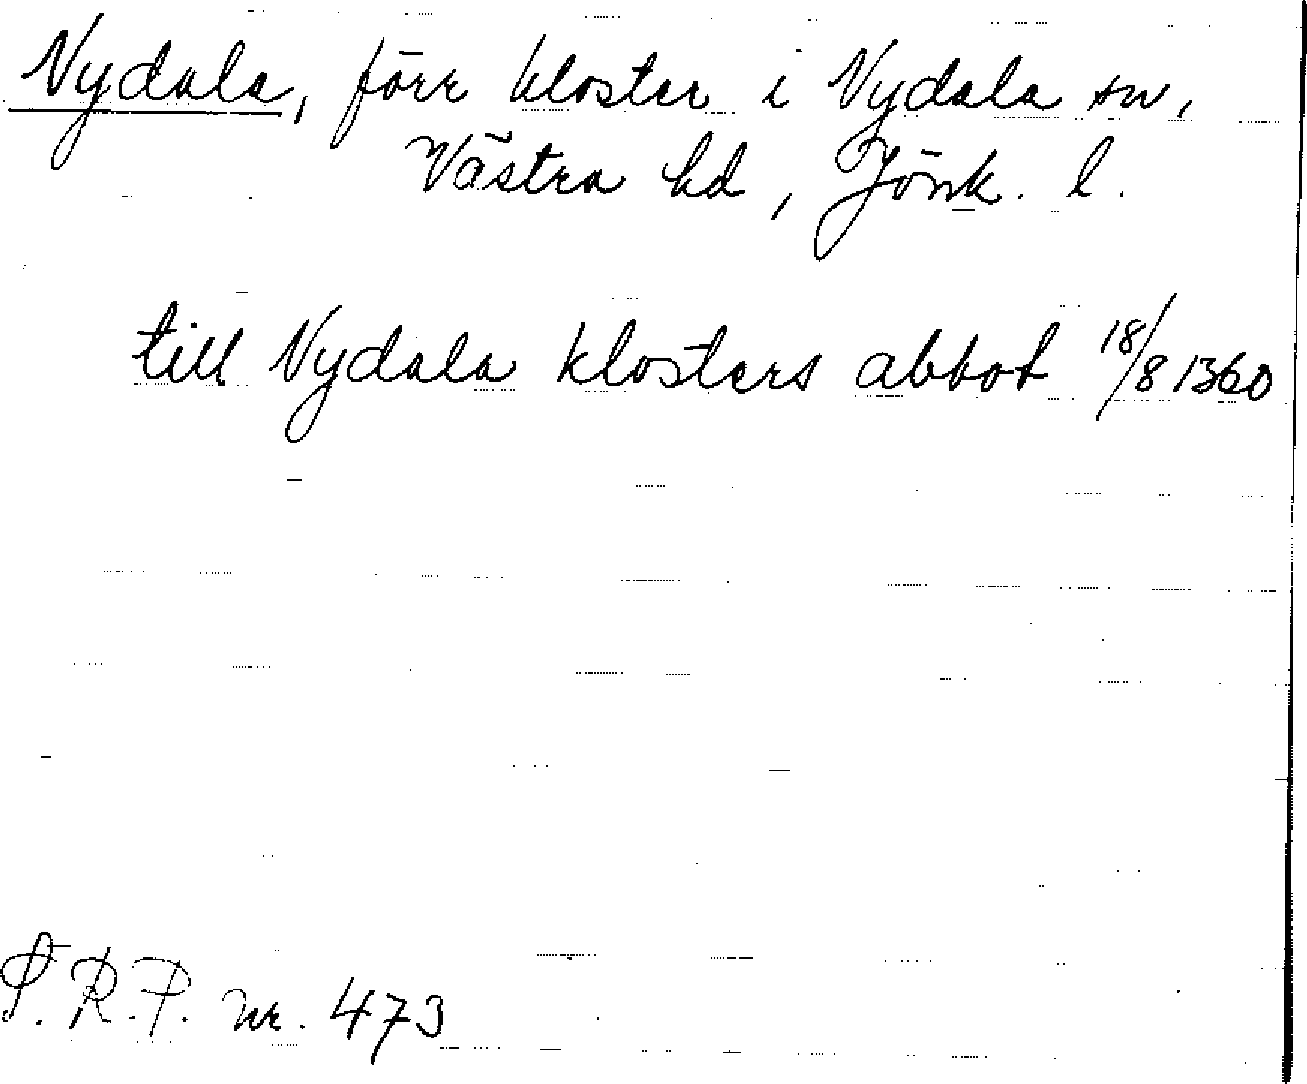 Nydala, förr kloster i Nydala sn,
Västra hd, Jönk. l.
till Nydala klosters abbot 18/8 1360
S.R.P. nr. 473